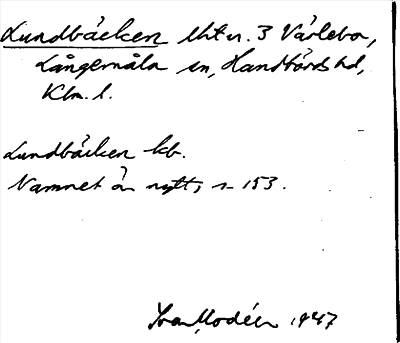 Lundbäcken lht u. 3 Värlebo,
Långemåla sn, Handbörds hd,
Klm. l.
Lundbäcken kb.
Namnet är nytt, s. 153.
Ivar Modéer 1947